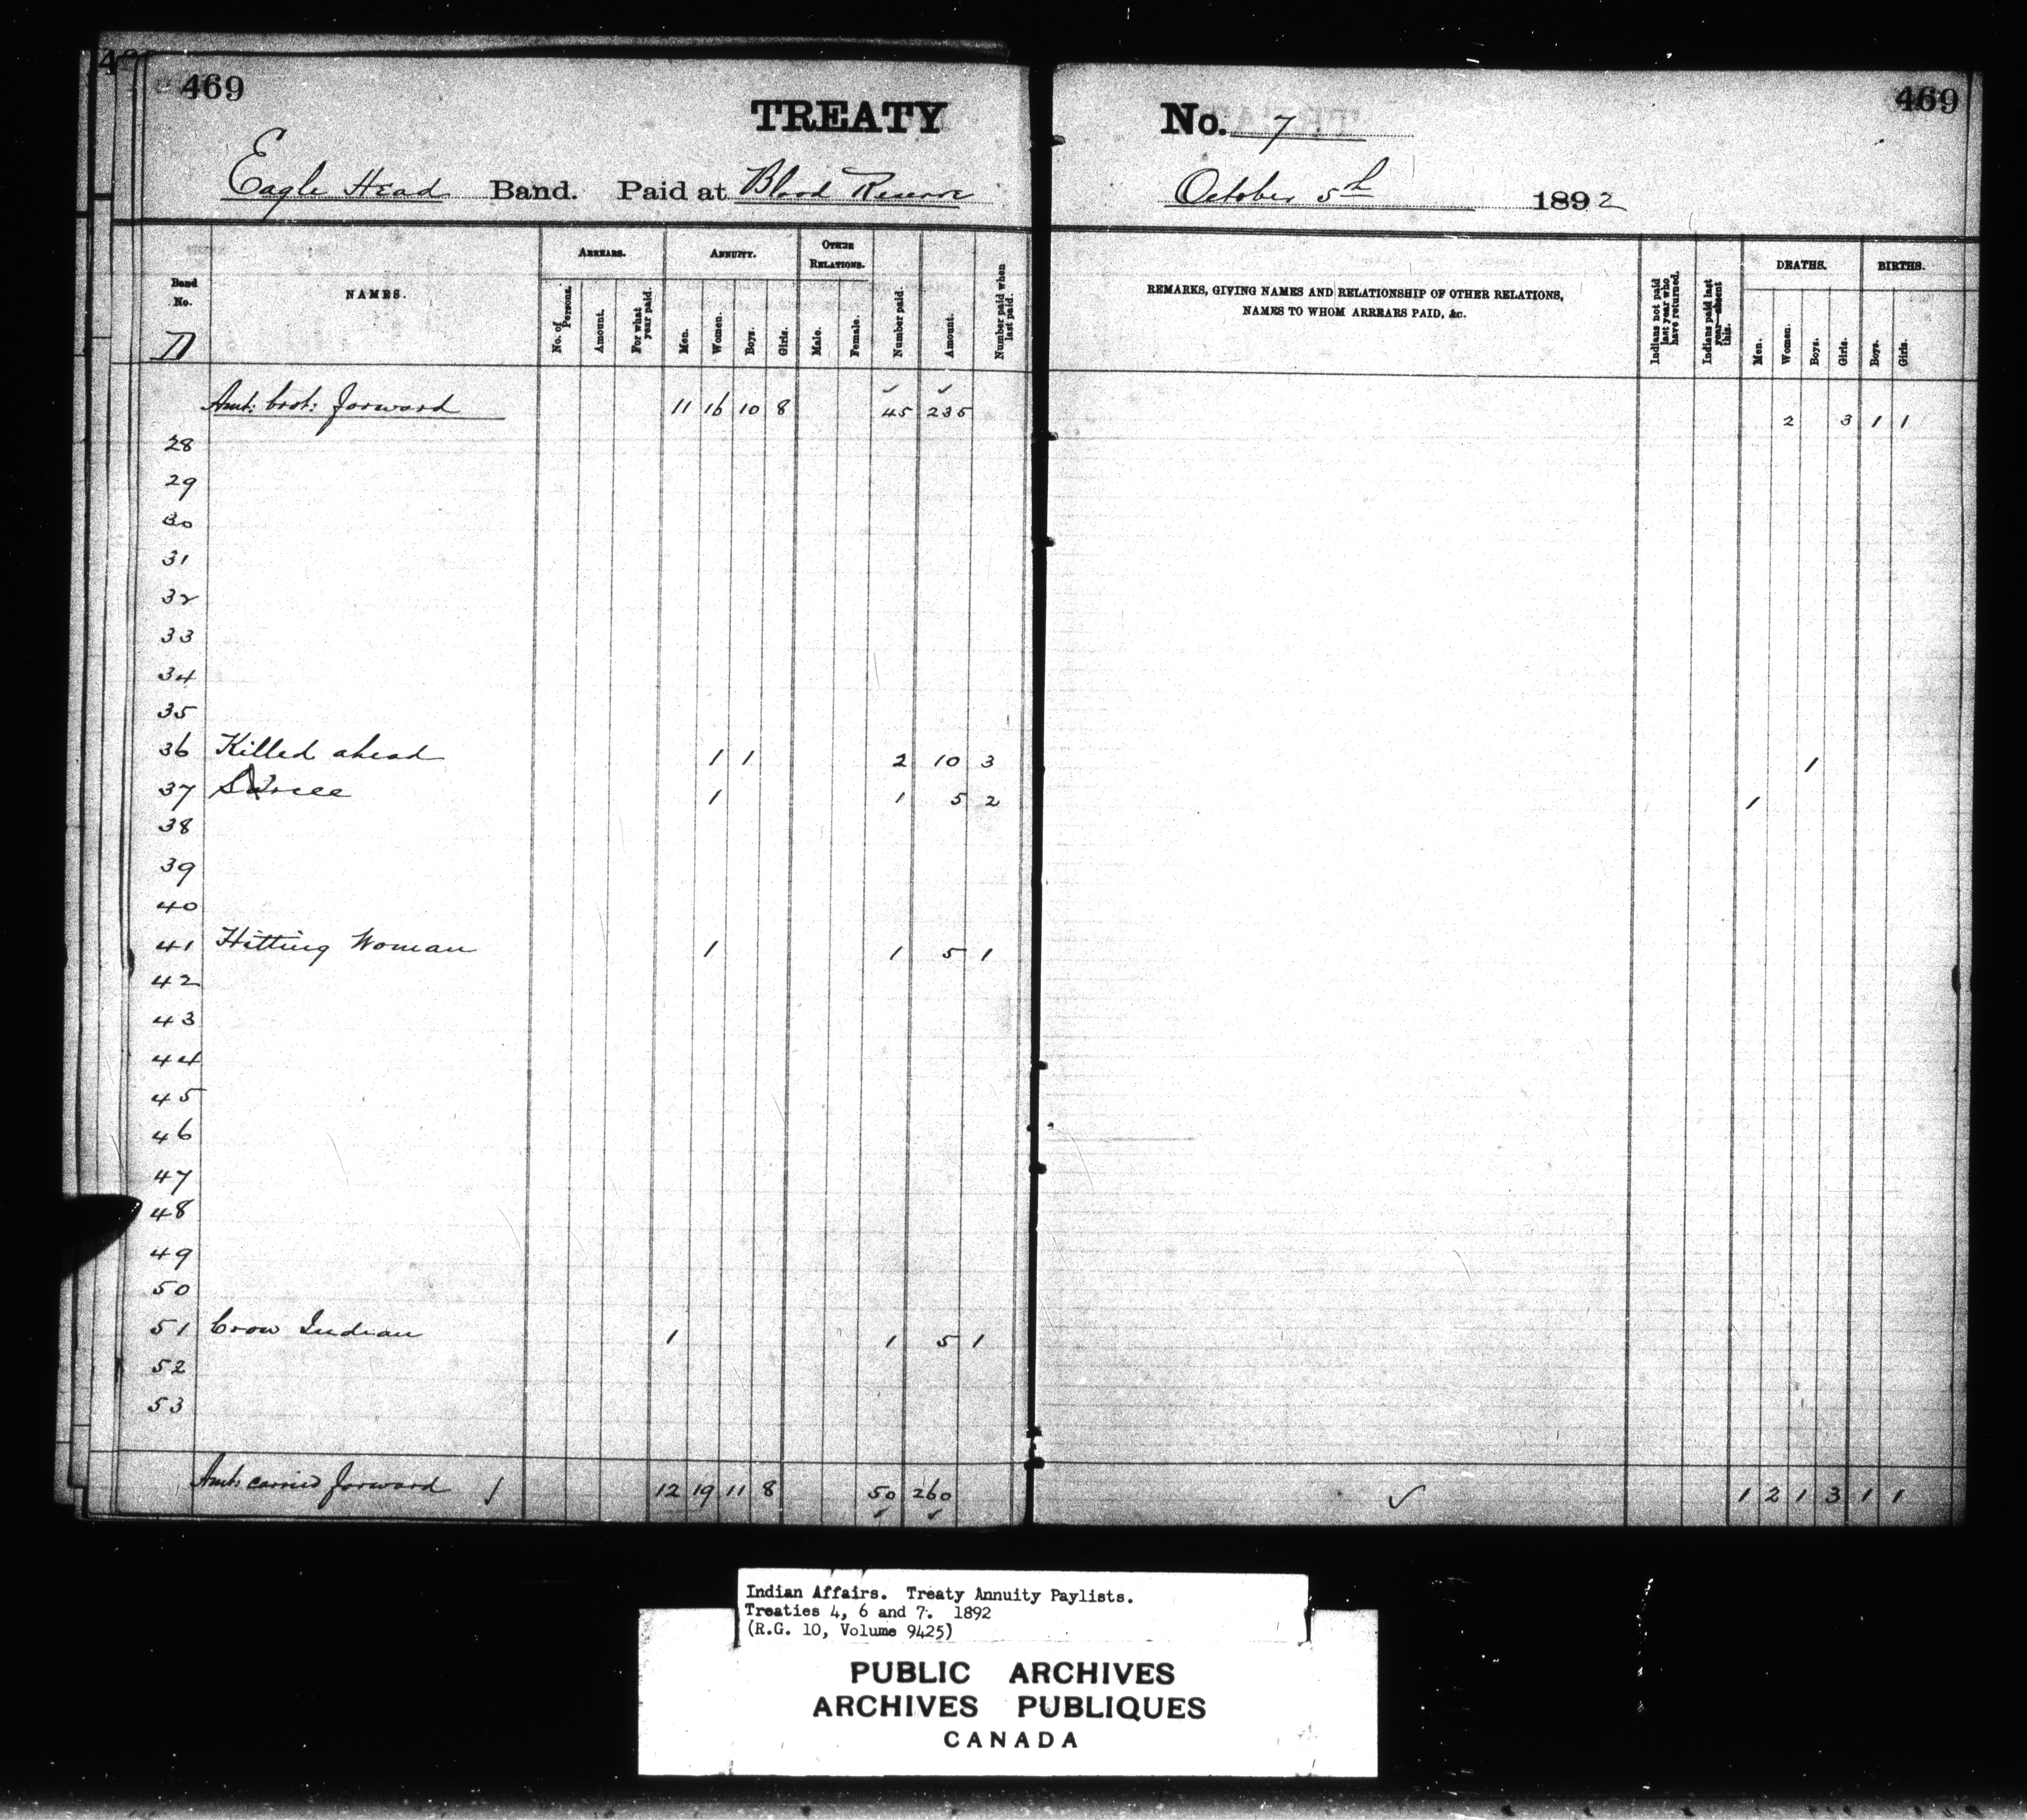 469 469
TREATY No. 7
Eagle Head Band. Paid at Blood Reserve October 5th 1892
Band No. NAMES. ARREARS. ANNUITY. OTHER RELATIONS. Number paid. Amount. Number paid when last paid. REMARKS, GIVING NAMES AND RELATIONSHIP OF OTHER RELATIONS, NAMES TO WHOM ARREARS PAID, &c. Indians not paid last year who have returned. Indians paid last year—absent this. DEATHS. BIRTHS.
No. of Persons. Amount. For what year paid. Men. Women. Boys. Girls. Male. Female. Men. Women. Boys. Girls. Boys. Girls.
Amt: brot: forward 11 16 10 8 45 235 2 3 1 1
28
29
30
31
32
33
34
35
36 Killed ahead 1 1 2 10 3 1
37 1 1 5 2 1
38
39
40
41 Hitting Woman 1 1 5 1
42
43
44
45
46
47
48
49
50
51 Crow Indian 1 1 5 1
52
53
Amt: carried forward 12 19 11 8 50 260 1 2 1 3 1 1
Indian Affairs. Treaty Annuity Paylists.
Treaties 4, 6 and 7. 1892
(R.G. 10, Volume 9425)
PUBLIC ARCHIVES
ARCHIVES PUBLIQUES
CANADA